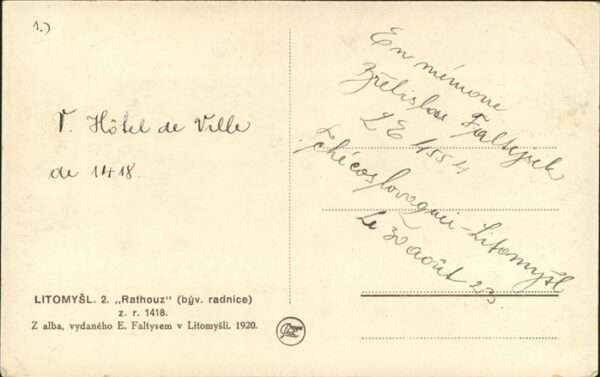 1.)
V. Hôtel de Ville
de 1418.
En mémoire
Břetislav Faltysek
LE 4554
Tchécoslovaquie-Litomyšl
Le 30 août 23.
LITOMYŠL. 2. „Rathouz" (býv. radnice)
z. r. 1418.
Z alba, vydaného E. Faltysem v Litomyšli. 1920.